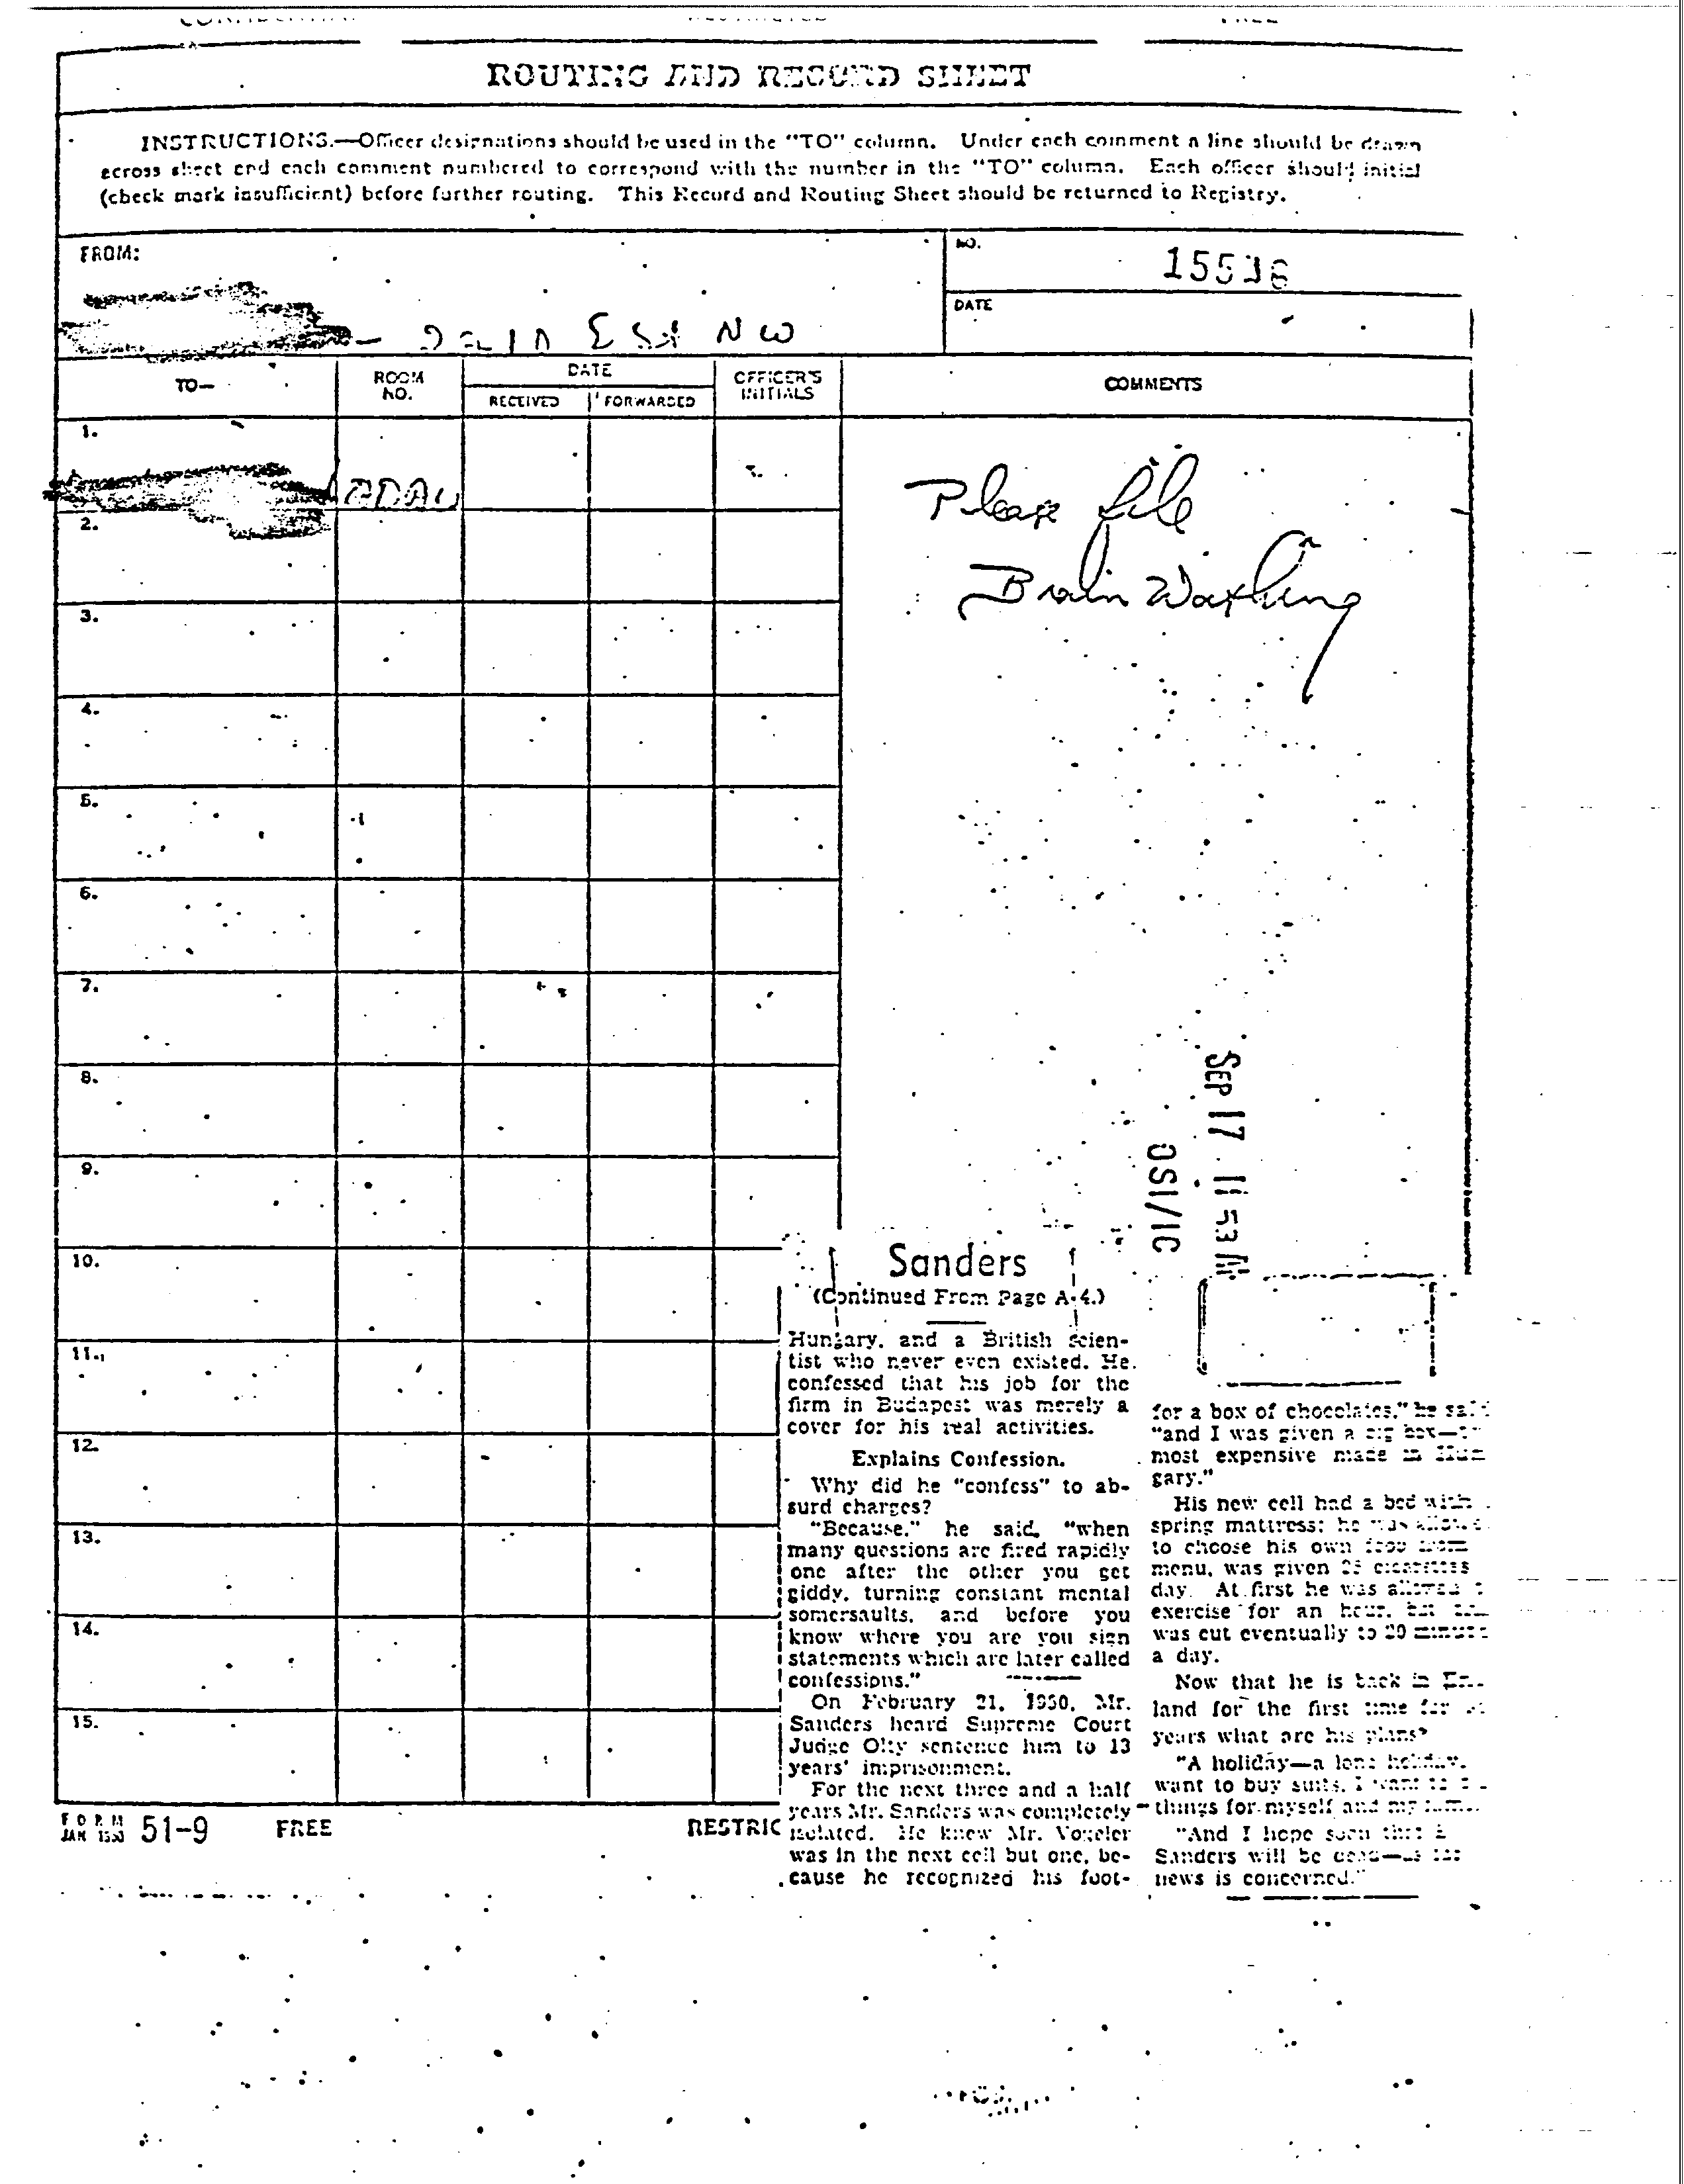 ROUTING AND RECORD SHEET
INSTRUCTIONS.—Officer designations should be used in the "TO" column. Under each comment a line should be drawn
across sheet and each comment numbered to correspond with the number in the "TO" column. Each officer should initial
(check mark insufficient) before further routing. This Record and Routing Sheet should be returned to Registry.
FROM:
NO.
DATE
TO—
ROOM NO.
DATE
RECEIVED
FORWARDED
OFFICER'S INITIALS
COMMENTS
1.
Please file
Brain Washing
2.
3.
4.
5.
6.
7.
8.
9.
10.
11.
12.
13.
14.
15.
SEP 17 11 53
OSI/IC
Sanders
(Continued From Page A-4.)
Hungary, and a British scien-
tist who never even existed. He
confessed that his job for the
firm in Budapest was merely a
cover for his real activities.
Explains Confession.
Why did he "confess" to ab-
surd charges?
"Because," he said, "when
many questions are fired rapidly
one after the other you get
giddy, turning constant mental
somersaults, and before you
know where you are you sign
statements which are later called
confessions."
On February 21, 1950, Mr.
Sanders heard Supreme Court
Judge Olty sentence him to 13
years' imprisonment.
For the next three and a half
years Mr. Sanders was completely
isolated. He knew Mr. Vogeler
was in the next cell but one, be-
cause he recognized his foot-
for a box of chocolates," he
"and I was given a big box—
most expensive made in
gary."
His new cell had a bed with
spring mattress; he was
to choose his own food from
menu, was given 25 cigarettes
day. At first he was allowed
exercise for an hour, but
was cut eventually to 20
a day.
Now that he is back in
land for the first time for
years what are his plans?
"A holiday—a long holiday.
want to buy suits. I want to
things for myself and my
"And I hope soon that
Sanders will be dead—as
news is concerned."
FORM
JAN 1950 51-9 FREE
RESTRIC